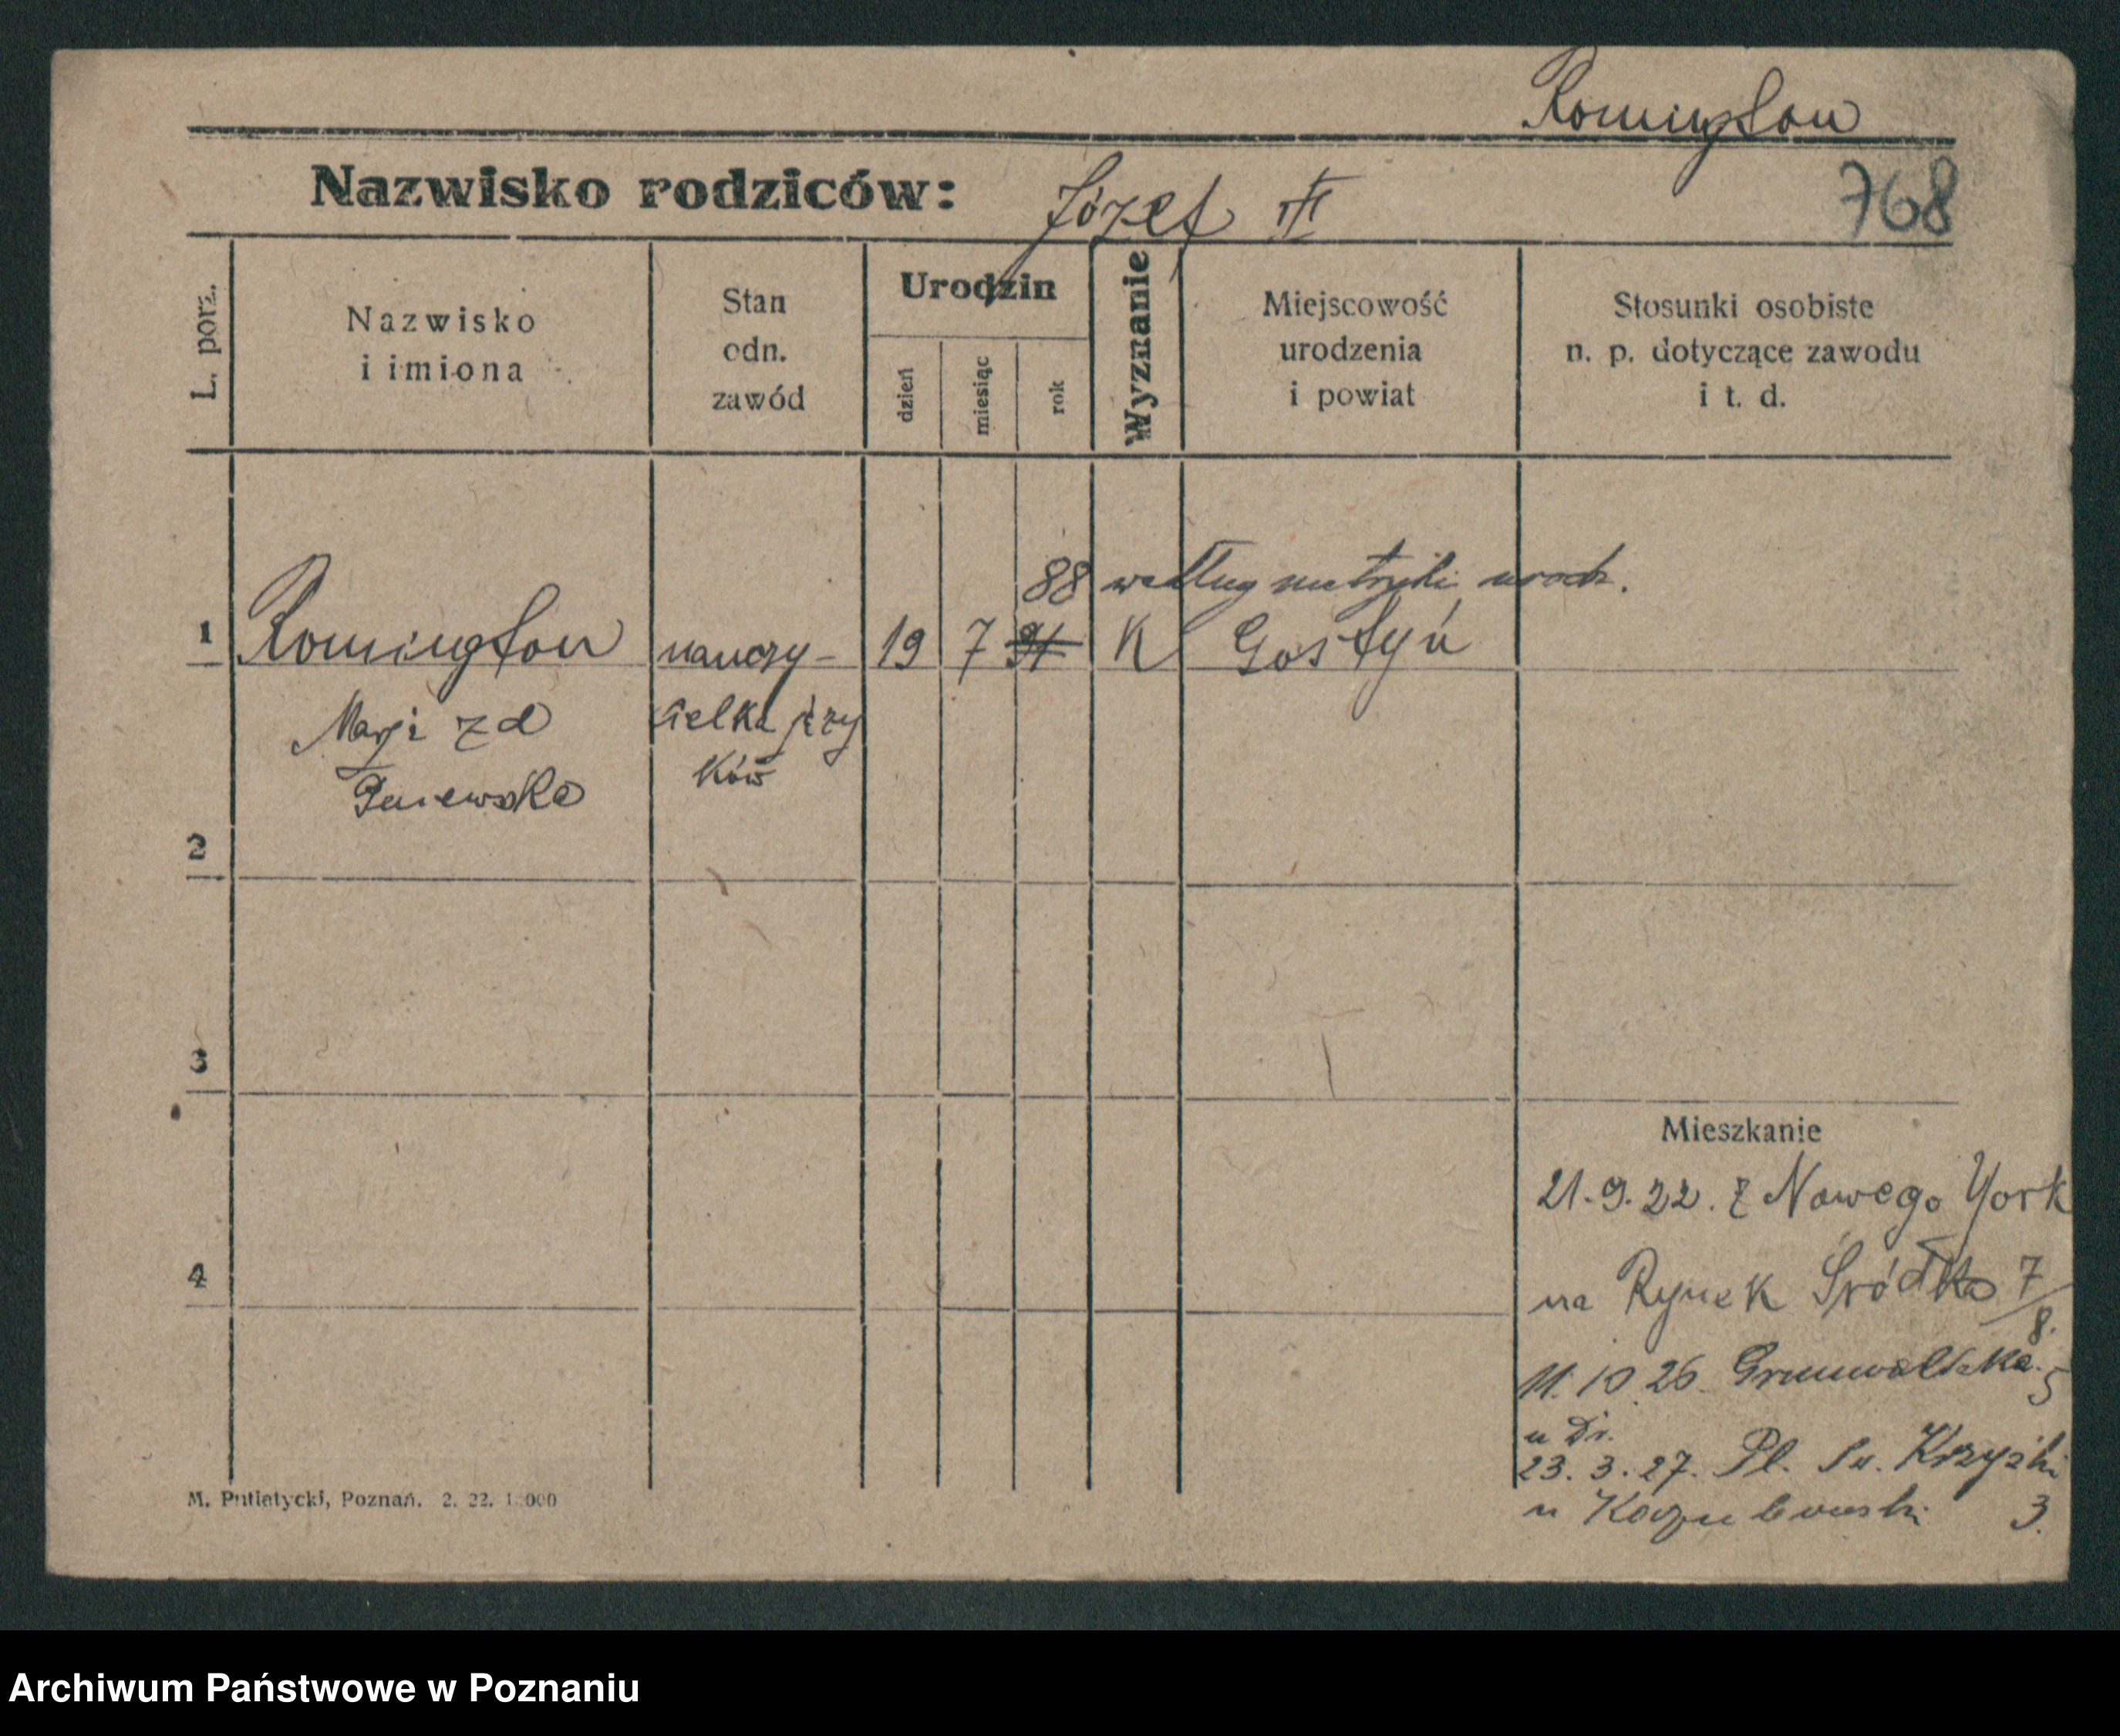 Romington
Nazwisko rodziców: Józef
768
L. porz.
Nazwisko
i imiona
Stan
odn.
zawód
Urodzin
dzień
miesiąc
rok
Wyznanie
Miejscowość
urodzenia
i powiat
Stosunki osobiste
n. p. dotyczące zawodu
i t. d.
88 według metryki urodz.
1 Romington nauczy- 19 7 91 K Gostyń
Marji zd cielka języ
ków
2
3
Mieszkanie
21.9.22. z Nowego York
4
na Rynek Śródka 7/8.
11.10 26. Grunwaldzka 5
u Dr.
23.3.27. Pl. Św. Krzyski
u 3.
M. Putiatycki, Poznań. 2. 22.
Archiwum Państwowe w Poznaniu